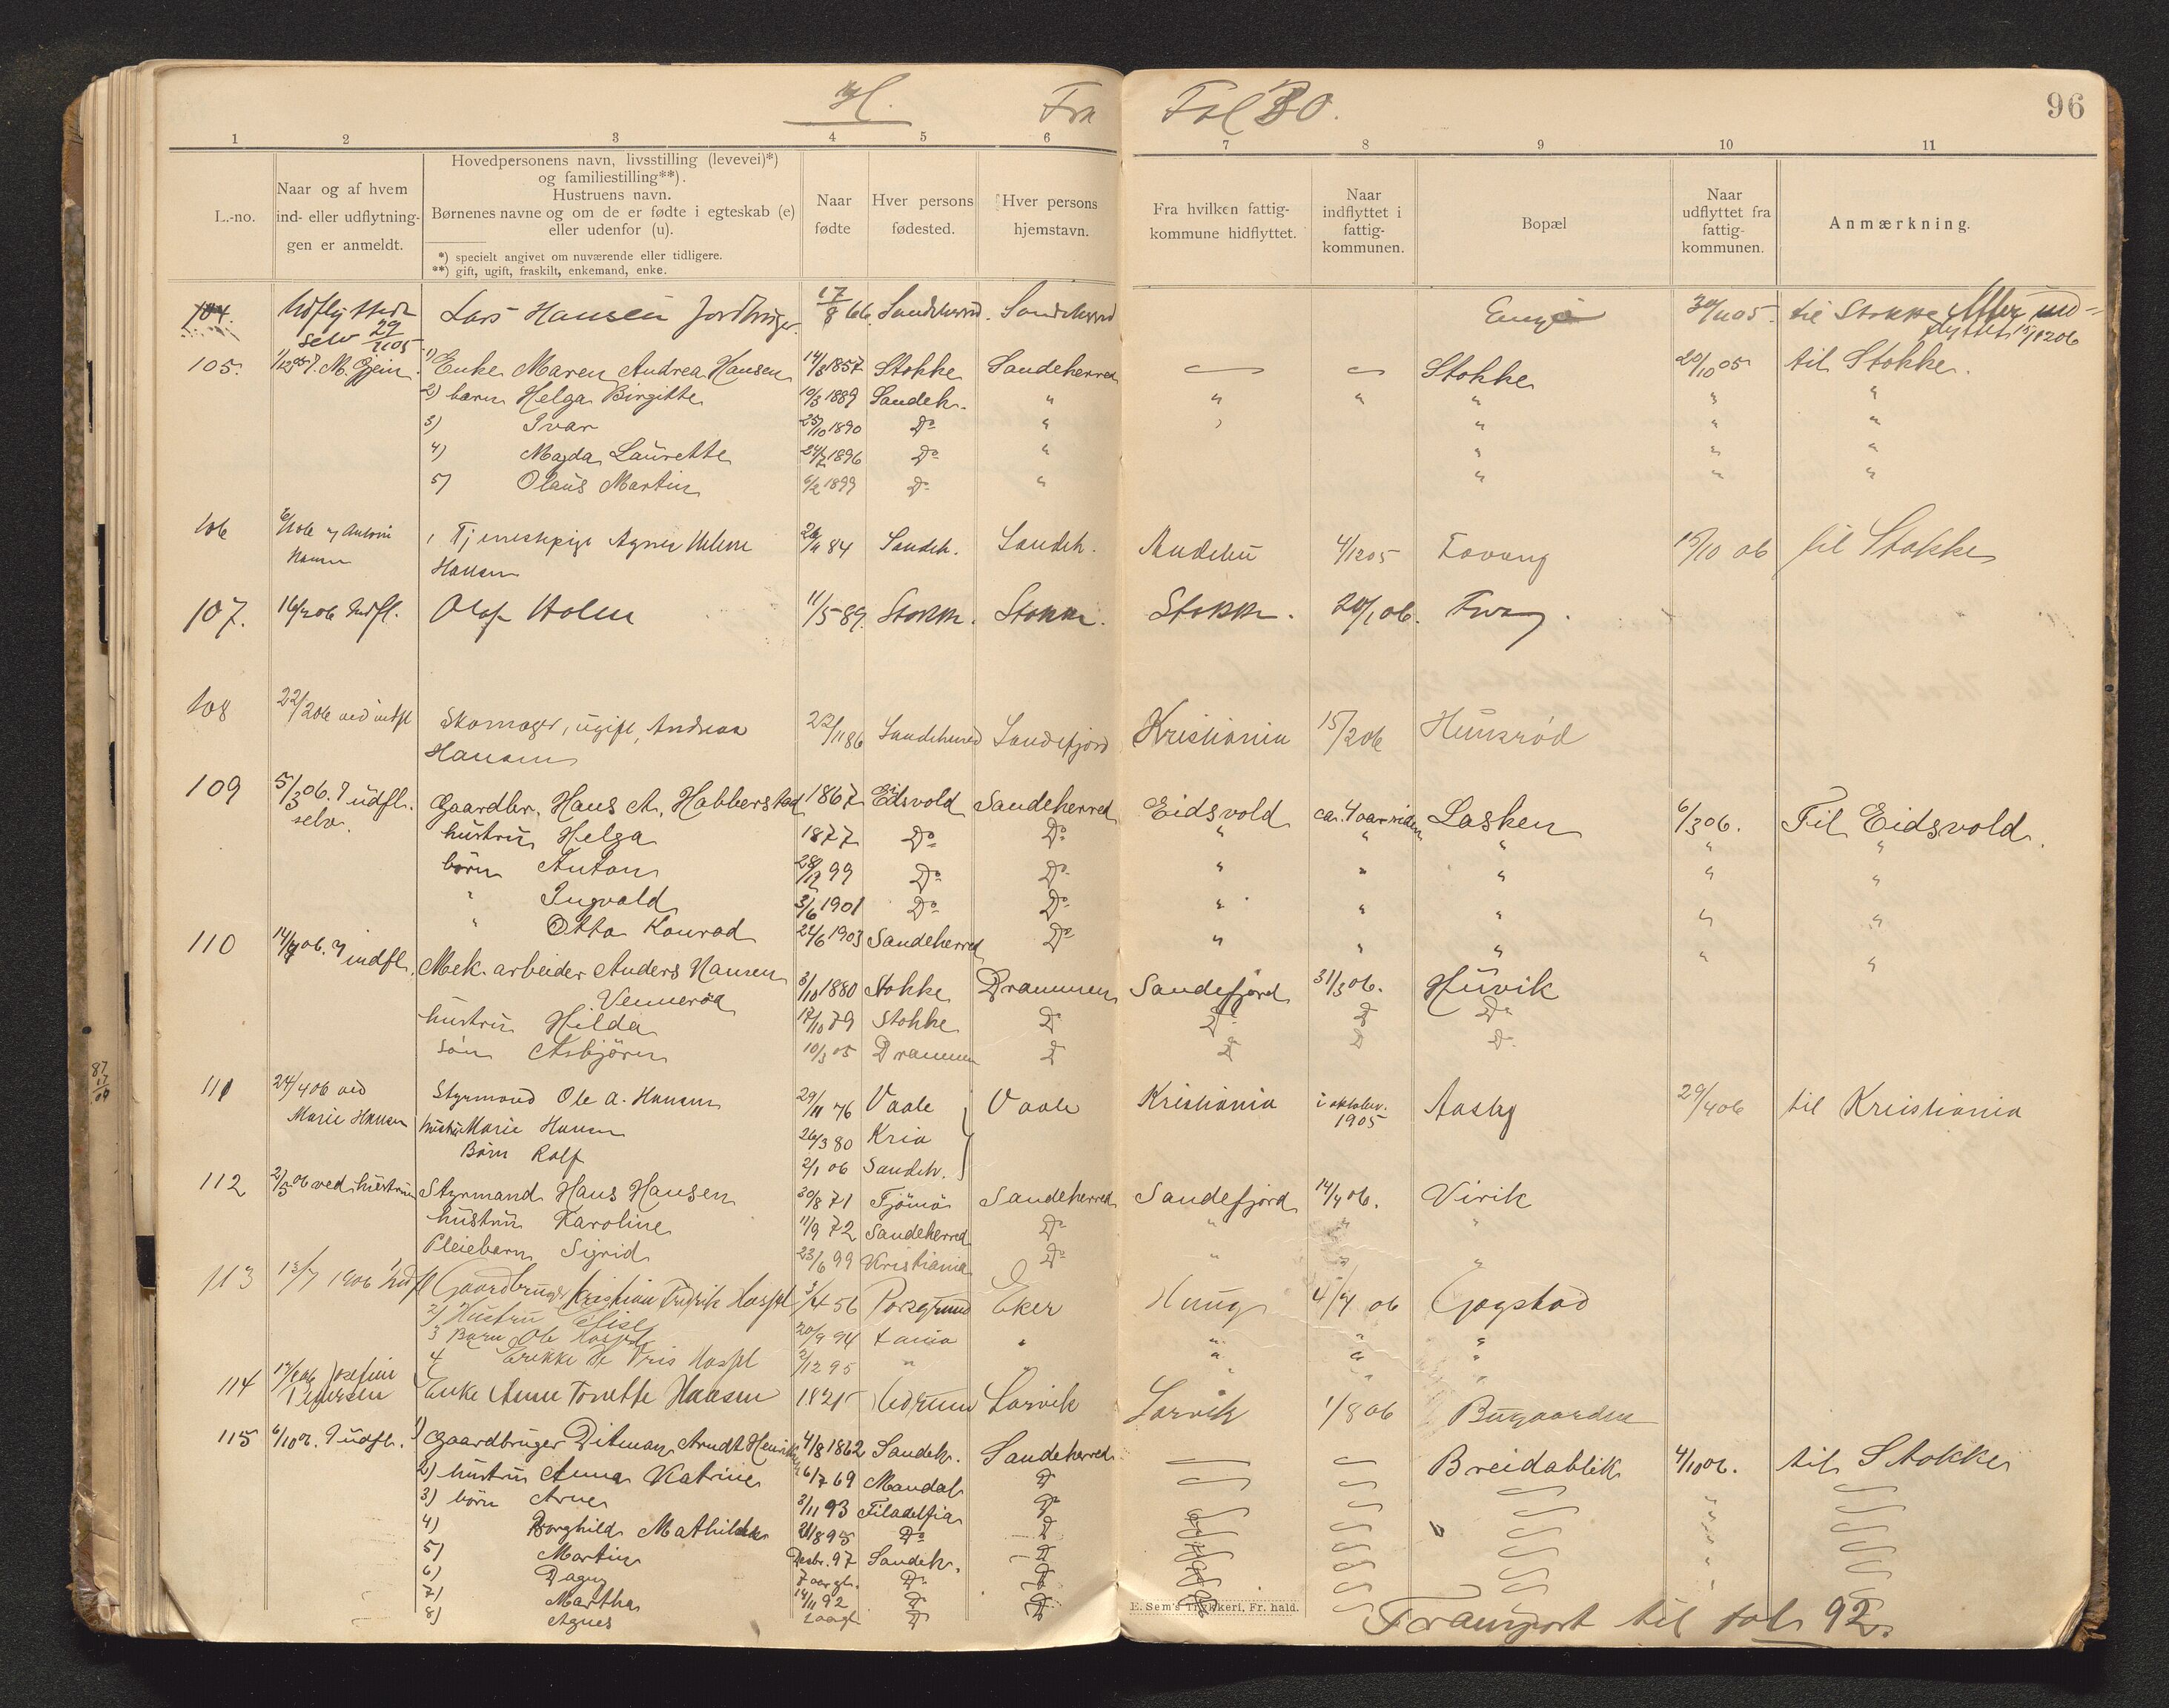 H. Fra Fol 80. 96
1 2 3 4 5 6 7 8 9 10 11
L.-no.
Naar og af hvem
ind- eller udflytnin-
gen er anmeldt.
Hovedpersonens navn, livsstilling (levevei)*)
og familiestilling**).
Hustruens navn.
Børnenes navne og om de er fødte i egteskab (e)
eller udenfor (u).
*) specielt angivet om nuværende eller tidligere.
**) gift, ugift, fraskilt, enkemand, enke.
Naar
fødte
Hver persons
fødested.
Hver persons
hjemstavn.
Fra hvilken fattig-
kommune hidflyttet.
Naar
indflyttet i
fattig-
kommunen.
Bopæl
Naar
udflyttet fra
fattig-
kommunen.
Anmærkning.
104. Lars Hansen 17/8 66. Sandeherred. Sandeherred 30/1105. til Stokke Atter ind-
selv 29/1105 flyttet 15/1206
105. 1) Enke Maren Andrea Hansen 14/8 1857 Stokke Sandeherred Stokke 20/10 05 til Stokke.
2) barn Helga Birgitte 10/3 1889 Sandeh. " " " " " "
3) Ivar 25/10 1890 Do " " " "
4) Magda Laurette 24/7 1896 Do " " " "
5) Olaus Martin 6/2 1899 Do " " " "
106 Tjenestepige Agnes Helene 26/11 84 Sandeh. Sandeh. Andebu 4/1205 Fovang 15/10 06 til Stokke
Hansen Hansen
107. 16/206 Indfl. Olaf Holm 11/5 89. Stokke. Stokke. Stokke. 20/1 06.
108 22/206 ved indfl Skomager, ugift, Andreas 22/11 86 Sandeherred Sandefjord Kristiania 15/206 Hunsrød
Hansen
109 5/3 06. ? udfl. Gaardbr. Hans A. Habberstad 1867 Eidsvold Sandeherred Eidsvold ca. 4 aar siden Lasken 6/3 06. Til Eidsvold.
selv. hustru Helga 1877 Do Do " " " " "
børn Anton 28/12 99 Do Do " " " " "
" Ingvald 3/6 1901 Do Do " " " " "
" Otto Konrad 24/6 1903 Sandeherred Do " " " " "
110 14/4 06. ? indfl. Mek. arbeider Anders Hansen 3/10 1880 Stokke Drammen Sandefjord 31/3 06. Huvik
Vennerød
hustru Hilda 17/10 79 Stokke Do Do Do Do
søn Asbjörn 10/3 05 Drammen Do Do Do Do
111 24/4 06 ved Styrmand Ole A. Hansen 29/11 76 Vaale Vaale Kristiania i oktober. Aasly 29/4 06 til Kristiania
Marie Hansen hustru Marie Hansen 26/3 80 Kria 1905
Barn Rolf 2/1 06 Sandeh.
112 2/5 06 ved hustru Styrmand Hans Hansen 30/8 71 Tjömö Sandeherred Sandefjord 14/4 06. Virik
hustru Karoline 11/9 72 Sandeherred Do " " "
Pleiebarn Sigrid 23/6 99 Kristiania Do " " "
113 13/7 1906 Indfl Gaardbruger Kristian Fredrik Haspl 3/4 56 Porsgrund Eker Haug 4/4 06 Gogstad
2) Hustru Else
3 Barn Ole Haspl 20/9 94 " " " "
4 De Vris Haspl 2/12 95 " " " " "
114 Josefine Enke Anne Tonette Hansen Hedrum Larvik Larvik 1/8 06 Bugaarden
Petersen
115 6/10 06. ? udfl. 1) Gaardbruger Ditman Arndt Henriksen 4/8 1862 Sandeh. Sandeherred Breidablik 4/10 06. til Stokke
2) hustru Anna Katrine 26/7 69 Mandal Do
3) børn Arne 3/11 93 Filadelfia Do
4) Borghild Mathilde 21/8 95 Do Do
5) Martin Desbr. 97 Sandeh. Do
6) Dagny 7 aar gl. Do Do
7) Martha 14/11 92 Do Do
8) Agnes 2 aar gl. Do Do
E. Sem's Trykkeri, Fr.hald.
Transport til fol. 92.
87
17
04